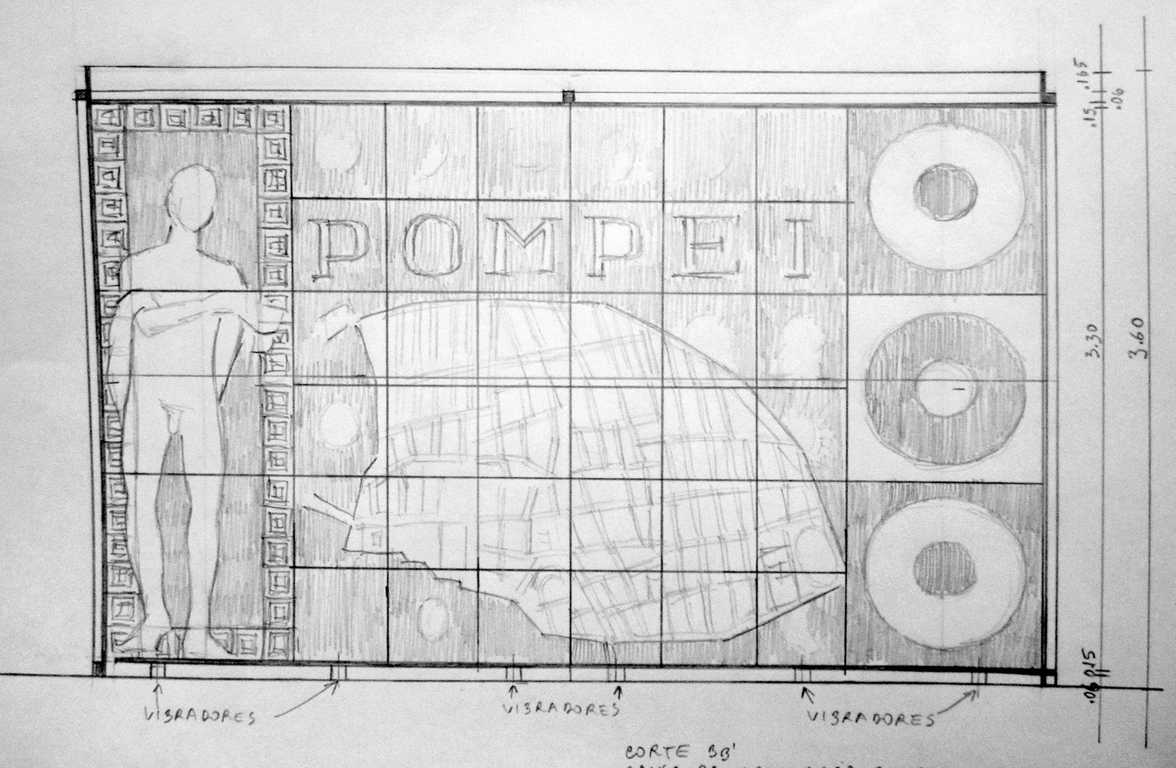 POMPEI
.165
.06
.15
3.30
3.60
.15
.06
VIBRADORES
VIBRADORES
VIBRADORES
CORTE BB'